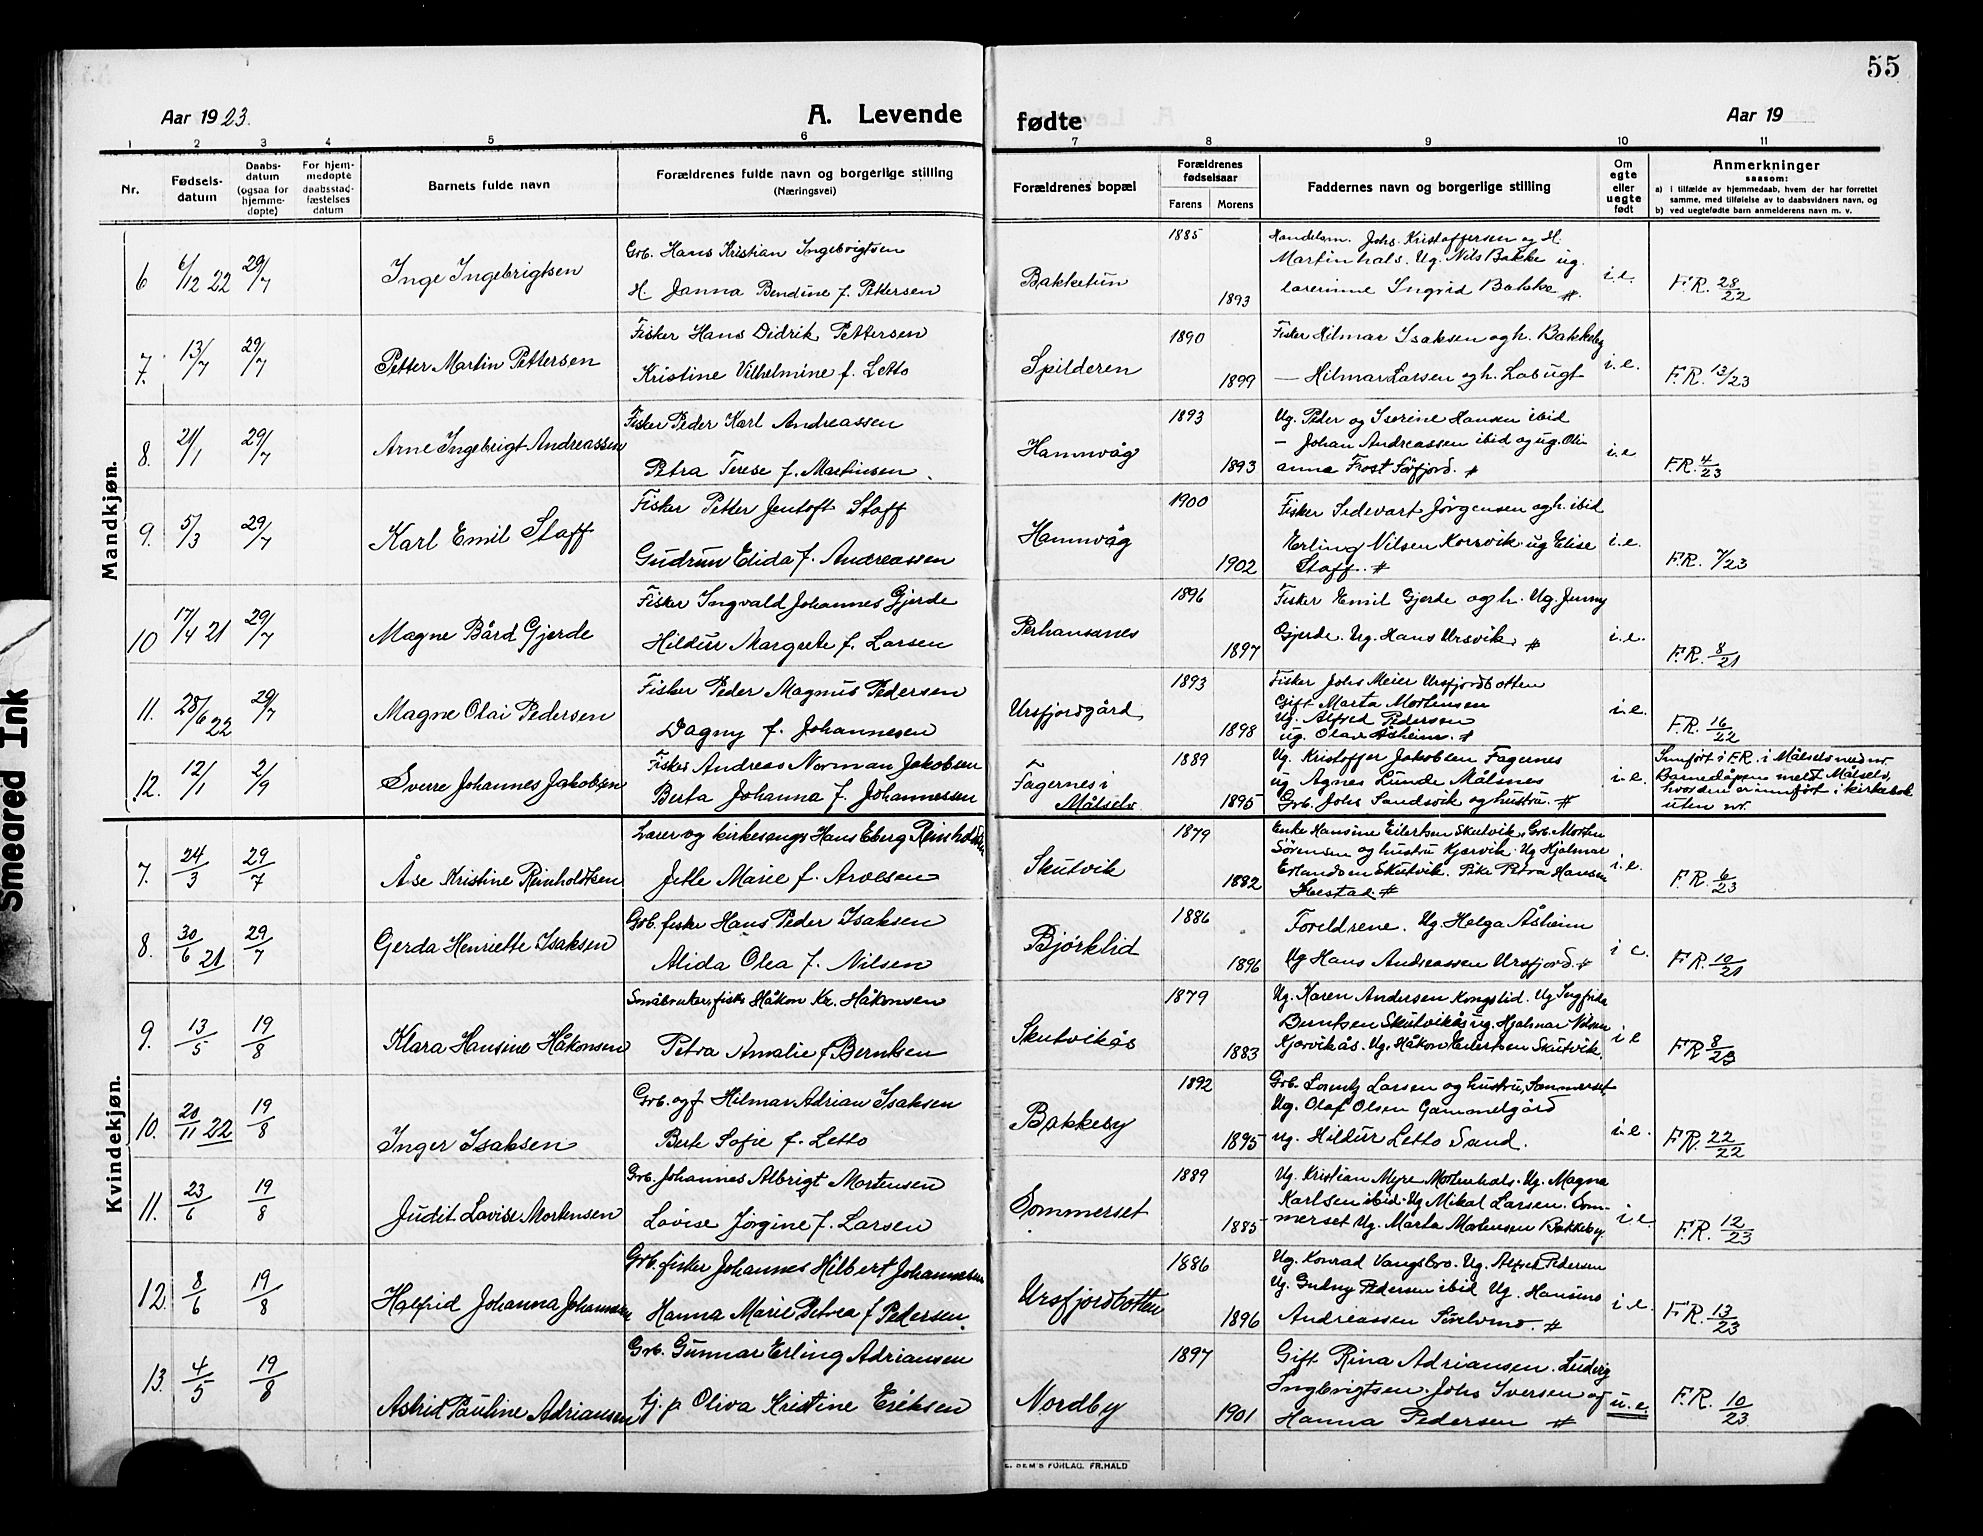 55
Aar 1923.
A. Levende
fødte
Aar 19
1 2 3 4 5 6 7 8 9 10 11
Nr.
Fødsels-
datum
Daabs-
datum
(ogsaa for
hjemme-
døpte)
For hjem-
medøpte
daabsstad-
fæstelses
datum
Barnets fulde navn
Forældrenes fulde navn og borgerlige stilling
(Næringsvei)
Forældrenes bopæl
Forældrenes
fødselsaar
Farens Morens
Faddernes navn og borgerlige stilling
Om
egte
eller
uegte
født
Anmerkninger
saasom:
a) i tilfælde av hjemmedaab, hvem der har forrettet
samme, med tilføielse av to daabsvidners navn, og
b) ved uegtefødte barn anmelderens navn m. v.
Mandkjøn.
6 6/12 22 29/7 Inge Ingebrigtsen
Grb. Hans Kristian Ingebrigtsen
H. Janna Bendine f. Pettersen
Bakketun 1885 1893
Handelsm. Johs. Kristoffersen og H.
Martinhals. Ug. Nils Bakke ug.
lærerinne Ingrid Bakke #.
i.e. F.R. 28/22
7. 13/7 29/7 Petter Martin Pettersen
Fisker Hans Didrik Pettersen
Kristine Vilhelmine f. Letto
Spilderen 1890 1899
Fisker Hilmar Isaksen og h. Bakkeby
— Hilmar Larsen og h. Labugt
i.e. F.R. 13/23
8. 21/1 29/7 Arne Ingebrigt Andreassen
Fisker Peder Karl Andreassen
Petra Terese f. Martinsen.
Hamnvåg 1893 1893
Ug. Peder og Iserine Hansen ibid
— Johan Andreassen ibid og ug. Oli-
anna Frost Sørfjord. #
i.e F.R. 4/23
9. 5/3 29/7 Karl Emil Staff
Fisker Petter Jentoft Staff
Gudrun Elida f. Andreassen
Hamnvåg 1900 1902
Fisker Sedevart Jørgensen og h. ibid
Erling Nilsen Korsvik ug Elise
Staff. #
i.e. F.R. 7/23
10 17/4 21 29/7 Magne Bård Gjerde
Fisker Ingvald Johannes Gjerde
Hildur Margrete f. Larsen
Perhansanes 1896 1897
Fisker Emil Gjerde og h. Ug. Jenny
Gjerde. Ug. Hans Ursvik. #
i.e. F.R. 8/21
11. 28/6 22 29/7 Magne Olai Pedersen
Fisker Peder Magnus Pedersen
Dagny f. Johannesen
Ursfjordgård 1893 1898
Fisker Johs Meier Ursfjordbotten
Gift Marta Mortensen
Ug. Alfred Pedersen
ug. Olav Åsheim. #
i.e. F.R. 16/22
12. 12/1 2/9 Sverre Johannes Jakobsen
Fisker Andreas Norman Jakobsen
Berta Johanna f. Johannessen
Fagernes i
Målselv 1889 1895
Ug. Kristoffer Jakobsen Fagernes
ug Agnes Lunde Målsnes
Grb. Johs Sandsvik og hustru. #
i.e. Innført i F.R. i Målselv
Barnedåpen meldt Målselv,
hvor den er innført i kirkebok
uten nr.
Kvindekjøn.
7. 24/3 29/7 Åse Kristine Reinholdtsen
Lærer og kirkesanger Hans Eberg Reinholdtsen
Jetle Marie f. Arvesen
Skutvik 1879 1882
Enke Hansine Eilertsen Skutvik, Grb. Morten
Sørensen og hustru Kjærvik. Ug Hjalmar
Erlandsen Skutvik. Pike Petra Hansen
#
i.e. F.R. 6/23
8. 30/6 21 29/7 Gerda Henriette Isaksen
Grb. fisker Hans Peder Isaksen
Alida Olea f. Nilsen
Bjørklid 1886 1896
Foreldrene. Ug. Helga Åsheim
Ug Hans Andreassen Ursfjord. #
i e. F.R. 10/21
9. 13/5 19/8 Klara Hansine Håkonsen
Småbruker, fisk. Håkon Kr. Håkonsen
Petra Amalie f Berntsen
Skutvikås 1879 1883
Ug. Karen Andersen Kongslid. Ug Ingfrida
Berntsen Skutvikås ug. Hjalmar Nilsen
Kjærvikås. Ug. Håkon Eilertsen Skutvik.
i e F.R 8/23
10. 20/11 22 19/8 Inger Isaksen
Grb. og f Hilmar Adrian Isaksen
Berte Sofie f. Letto
Bakkeby 1892 1895
Grb. Lorentz Larsen og hustru, Sommerset,
Ug. Olaf Olsen Gammelgård
ug. Hildur Letto Sand.
i.e. F.R. 22/22
11. 23/6 19/8 Judit Lovise Mortensen
Grb. Johannes Albrigt Mortensen
Lovise Jørgine f. Larsen
Sommerset 1889 1885
Ug. Kristian Myre Mortenhals. Ug. Magna
Karlsen ibid. Ug Mikal Larsen. Som-
merset Ug. Marta Mortensen Bakkeby.
i.e. F.R. 12/23
12. 8/6 19/8 Halfrid Johanna Johannesen
Grb. fisker Johannes Hilbert Johannesen
Hanna Marie Petrea f Pedersen.
Ursfjordbotten 1886 1896
Ug. Konrad Vangsbro. Ug. Alfred Pedersen
Ug. Gudny Pedersen ibid Ug. Hansine
Andreassen #
i.e. F.R. 13/23
13. 4/5 19/8 Astrid Pauline Adriansen
Grb. Gunnar Erling Adriansen
tj. p. Oliva Kristine Eriksen
Nordby 1897 1901
Gift Rina Adriansen. Ludvig
Ingebrigtsen. Johs Iversen og
Hanna Pedersen #
u.e. F.R. 10/23
E. SEM'S FORLAG. FR.HALD
Smeared Ink